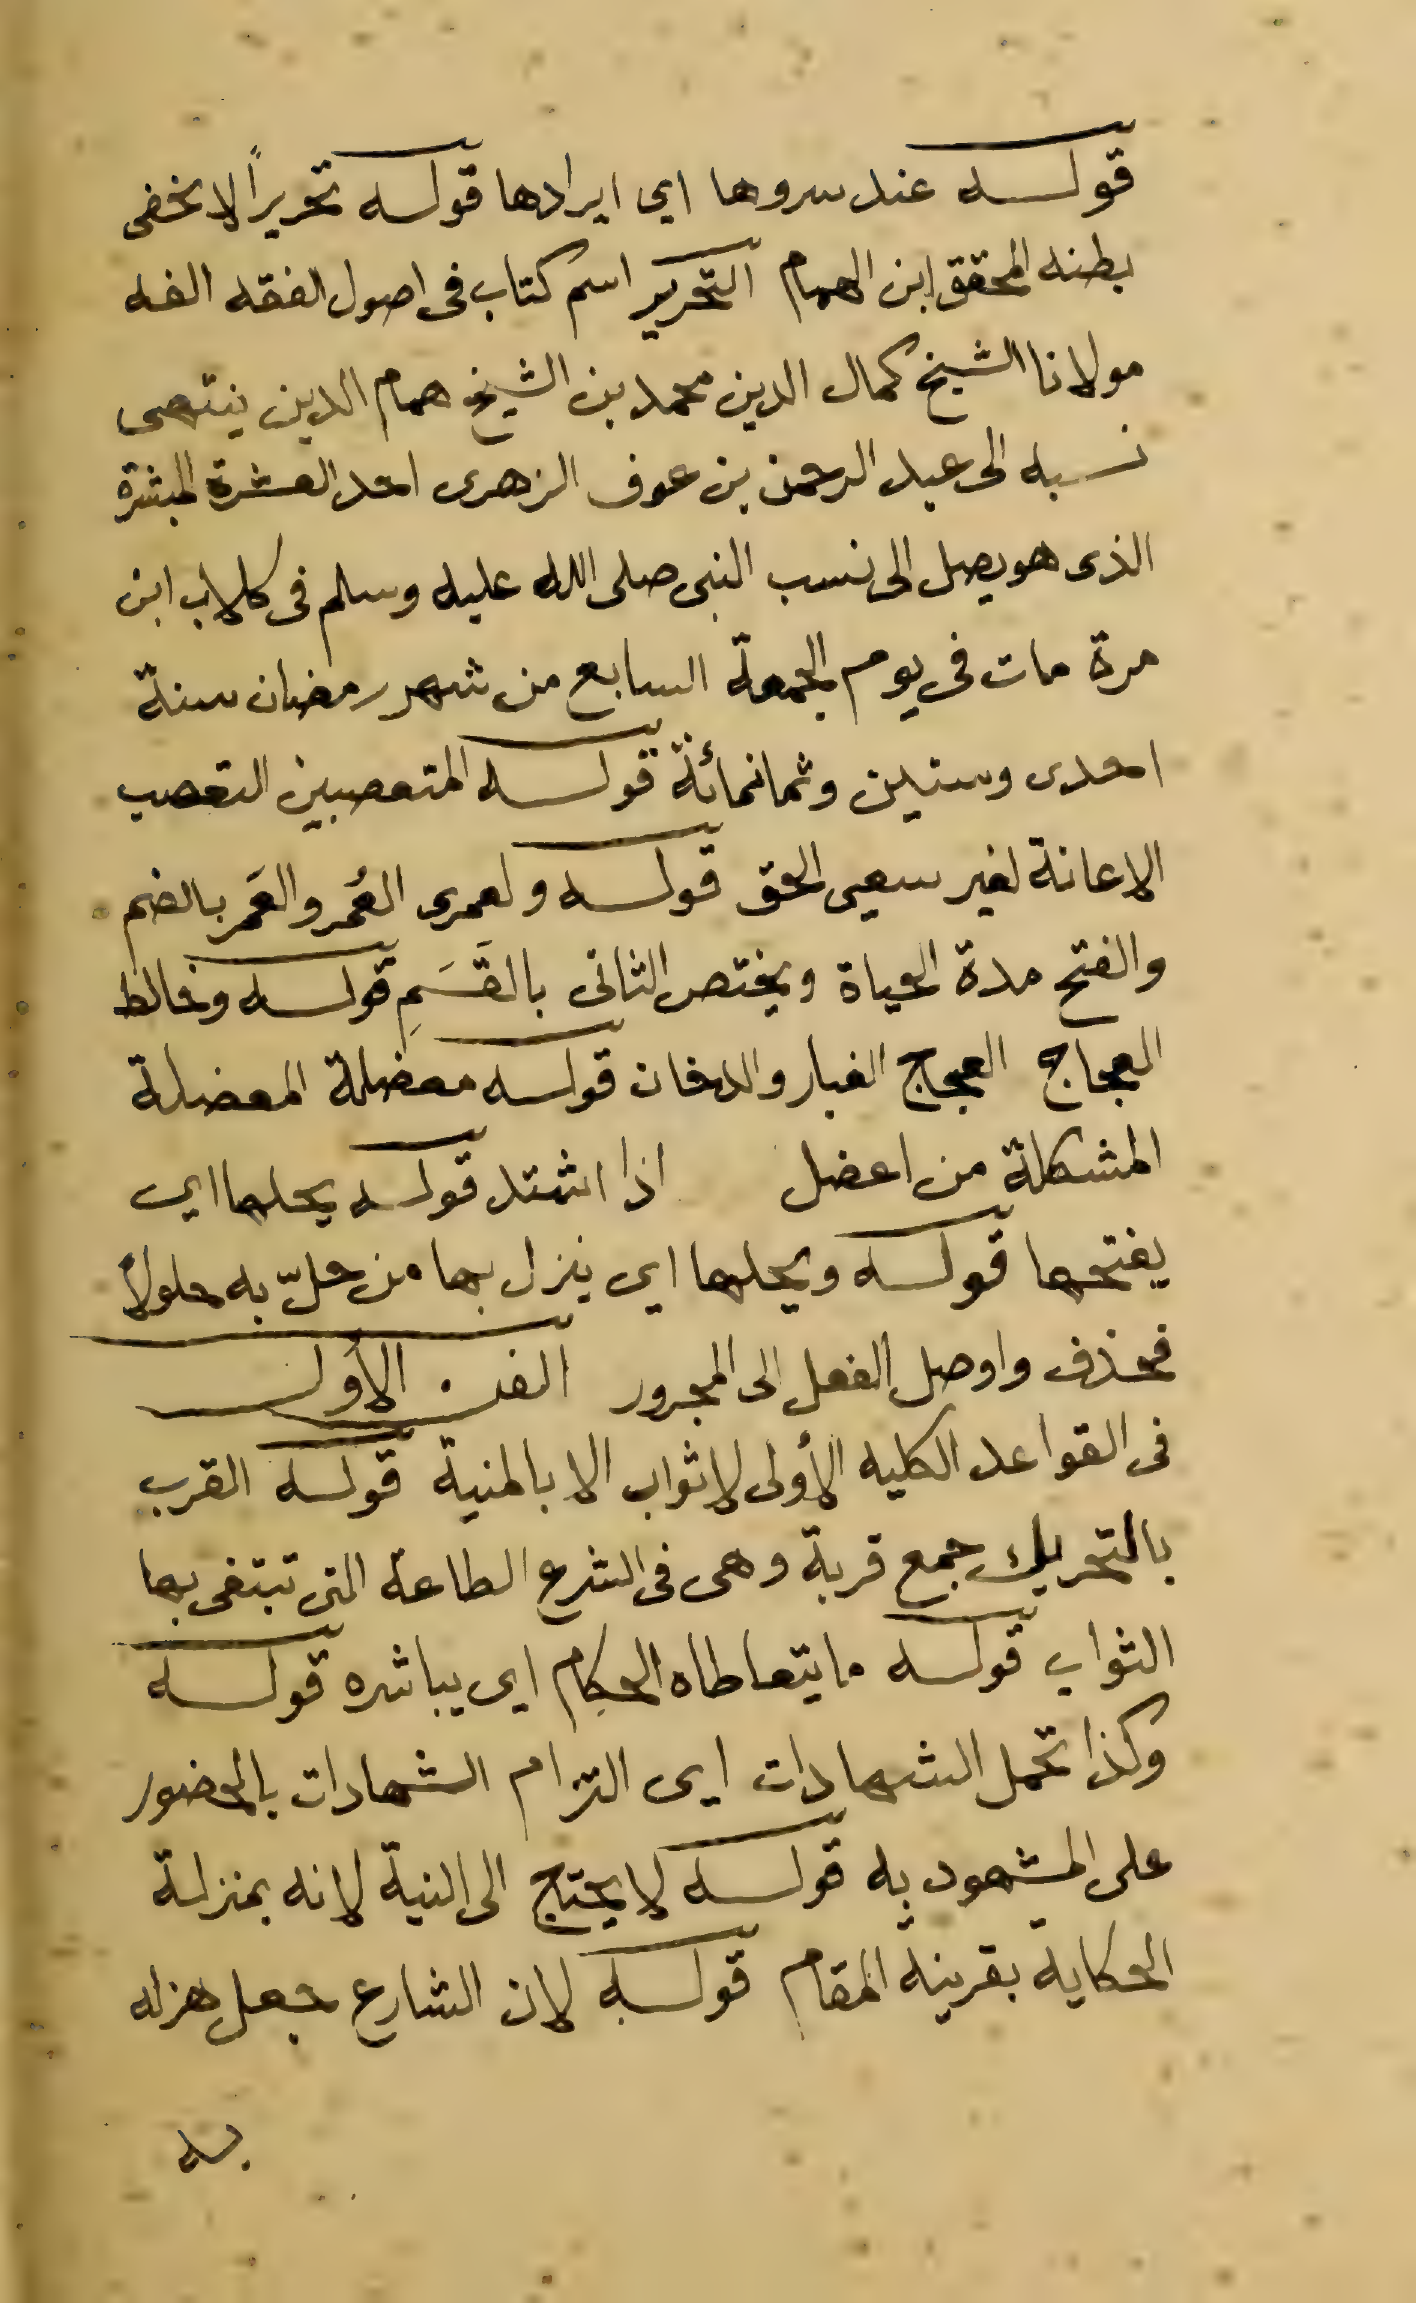 قوله عند سروها اي ايرادها قوله تحريراً لا يخفى
بطنه المحقق ابن الهمام التحرير اسم كتاب فى اصول الفقه الفه
مولانا الشيخ كمال الدين محمد بن الشيخ همام الدين ينتهى
نسبه الى عبد الرحمن بن عوف الزهرى احد العشرة المبشرة
الذى هو يصل الى نسب النبى صلى الله عليه وسلم فى كلاب ابن
مرة مات فى يوم الجمعة السابع من شهر رمضان سنة
احدى وستين وثمانمائة قوله المتعصبين التعصب
الاعانة لغير سعيى الحق قوله ولعمرى العُمر والعَمر بالضم
والفتح مدة الحياة ويختص الثانى بالقَسَمِ قوله وخالط
العجاج العجاج الغبار والدخان قوله معضلة المعضلة
المشكلة من اعضل اذا اشتد قوله يحلها اي
يفتحها قوله ويحلها اى ينزل بها من حلّ به حلولاً
فحذف واوصل الفعل الى المجرور الفن الأول
فى القواعد الكليه الأولى لا ثواب الا بالنية قوله القرب
بالتحريك جمع قربة وهى فى الشرع الطاعة التى تبتغى بها
الثواب قوله ما يتعاطاه الحكام اى يباشره قوله
وكذا تحمل الشهادات اى التزام الشهادات بالحضور
على المشهود به قوله لا يحتاج الى النية لانه بمنزلة
الحكاية بقرينة المقام قوله لان الشارع جعل هزله